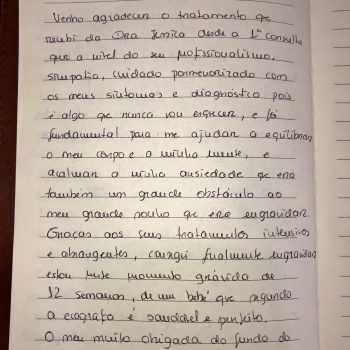 Venho agradecer o tratamento que
recebi da Dra Jessica desde a 1ª consulta
que a nivel do seu profissionalismo,
simpatia, cuidado pormenorizado com
os meus sintomas e diagnóstico pois
é algo que nunca vou esquecer, e foi
fundamental para me ajudar a equilibrar
o meu corpo e a minha mente, e
acalmar a minha ansiedade que era
também um grande obstáculo ao
meu grande sonho que era engravidar.
Graças aos seus tratamentos intensivos
e abrangentes, consegui finalmente engravidar
estou neste momento grávida de
12 semanas, de um bebé que segundo
a ecografia é saudável e perfeito.
O meu muito obrigada do fundo do